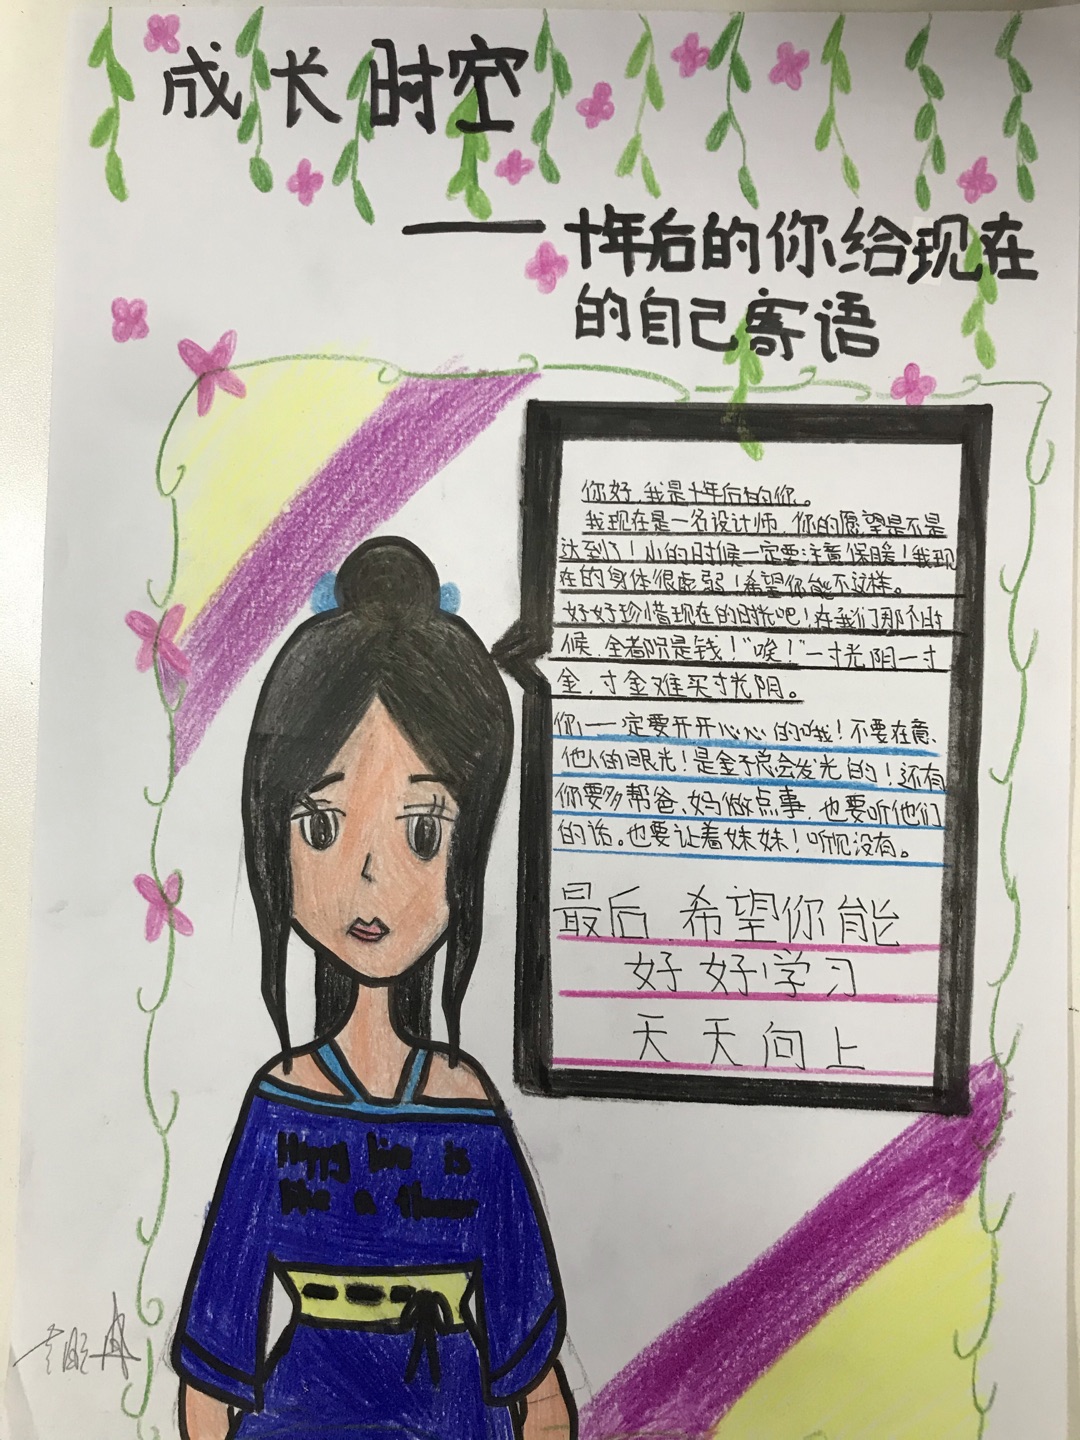 成长时空
——十年后的你给现在
的自己寄语
你好,我是十年后的你。
我现在是一名设计师,你的愿望是不是
达到了!小的时候一定要注意保暖!我现
在的身体很虚弱!希望你能不这样。
好好珍惜现在的时光吧!在我们那个时
候,全都院是钱!“唉!”一寸光阴一寸
金,寸金难买寸光阴。
你一定要开开心心的哦!不要在意、
他人的眼光!是金子总会发光的!还有
你要多帮爸、妈做点事,也要听他们
的话。也要让着妹妹!听见没有。
最后,希望你能
好好学习
天天向上
Happy live is
like a